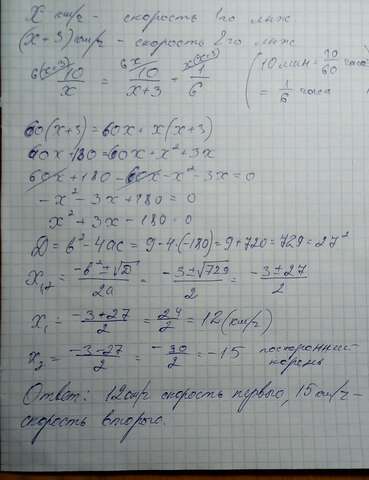 X км/ч - скорость 1го лыж
(x+3) км/ч - скорость 2го лыж
6(x+3) 10/x = 6x 10/x+3 + x(x+3) 1/6 (10 мин = 10/60 часа
= 1/6 часа
60(x+3)=60x+x(x+3)
60x+180=60x+x²+3x
60x+180-60x-x²-3x=0
-x²-3x+180=0
x²+3x-180=0
D=b²-4ac=9-4·(-180)=9+720=729=27²
X₁,₂=-b±√D/2a=-3±√729/2=-3±27/2
X₁=-3+27/2=24/2=12(км/ч)
X₂=-3-27/2=-30/2=-15 посторонний
корень
Ответ: 12км/ч скорость первого, 15 км/ч-
скорость второго.